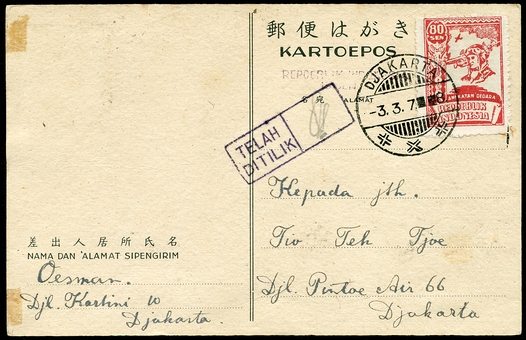 郵便はがき
KARTOEPOS
REPOEBLIK INDONESIA
名宛 ALAMAT
80
SEN
ANGKATAN OEDARA
REPOEBLIK
INDONESIA
DJAKARTA
-3.3.7
8
TELAH
DITILIK
Kepada jth.
Tio Teh Tjoe
Djl. Pintoe Air 66
Djakarta
差出人居所氏名
NAMA DAN ALAMAT SIPENGIRIM
Oesman.
Djl. Kartini 10
Djakarta.